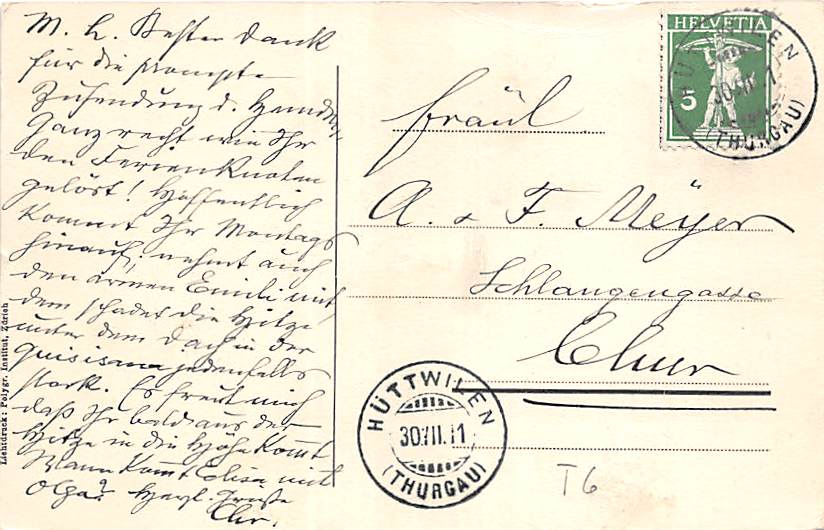 M. L. Besten Dank
für die prompte
Zusendung d.
Ganz recht wie Ihr
den Ferienknoten
gelöst! Hoffentlich
kommt Ihr Montags
hinauf; nehmt auch
den armen Emil mit,
dem schadet die Hitze
unter dem Dach in der
Quisisana jedenfalls
stark. Es freut mich
daß Ihr bald aus der
Hitze in die Höhe kommt
Wann kommt Elisa mit
Olga? Herzl. Grüße
Chr.
Lichtdruck: Polygr. Institut, Zürich
HELVETIA
5
HÜTTWILEN
30.VII.11
(THURGAU)
Fräul.
A. & F. Meÿer
Schlangengasse
Chur
HÜTTWILEN
30.VII.11
(THURGAU)
T6